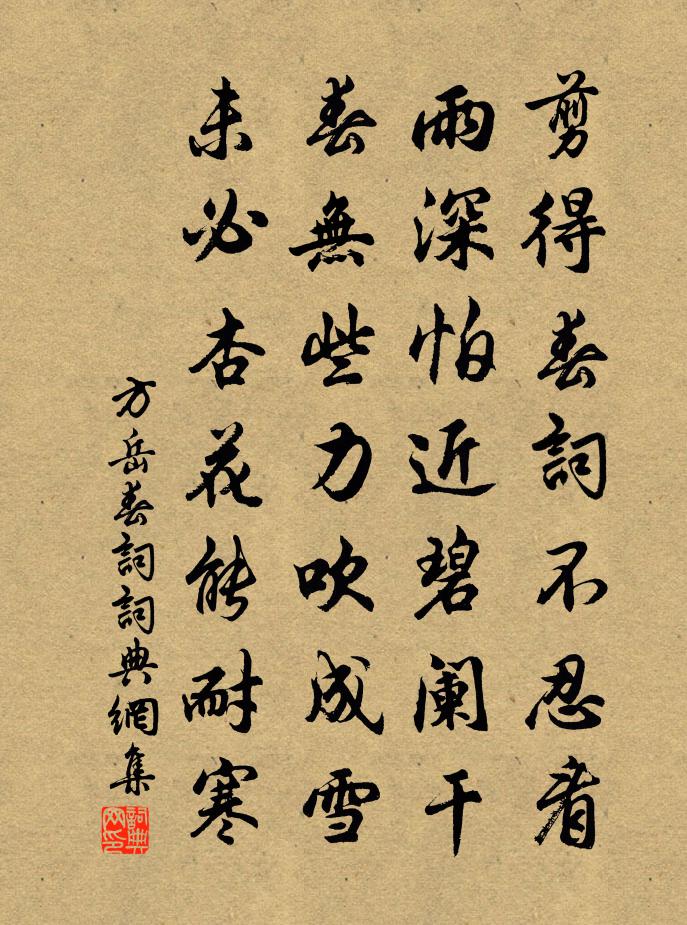 剪得春詞不忍看
雨深怕近碧阑干
春無些力吹成雪
未必杏花能耐寒
方岳春詞詞典網集
詞典網印